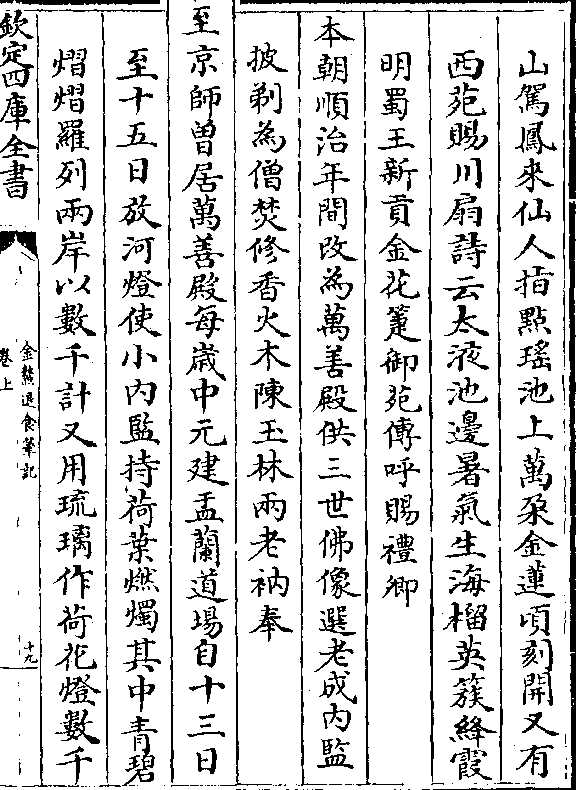 山駕鳳來仙人指點瑤池上萬朶金蓮頃刻開又有
西苑賜川扇詩云太液池邊暑氣生海榴英簇絳霞
明蜀王新貢金花箑御苑傳呼賜禮卿
本朝順治年間改為萬善殿供三世佛像選老成内監
披剃為僧焚修香火木陳玉林兩老衲奉
至京師曾居萬善殿每歲中元建盂蘭道場自十三日
至十五日放河燈使小内監持荷葉燃燭其中青碧
熠熠羅列兩岸以數千計又用琉璃作荷花燈數千
欽定四庫全書
金鰲退食筆記
卷上
十九